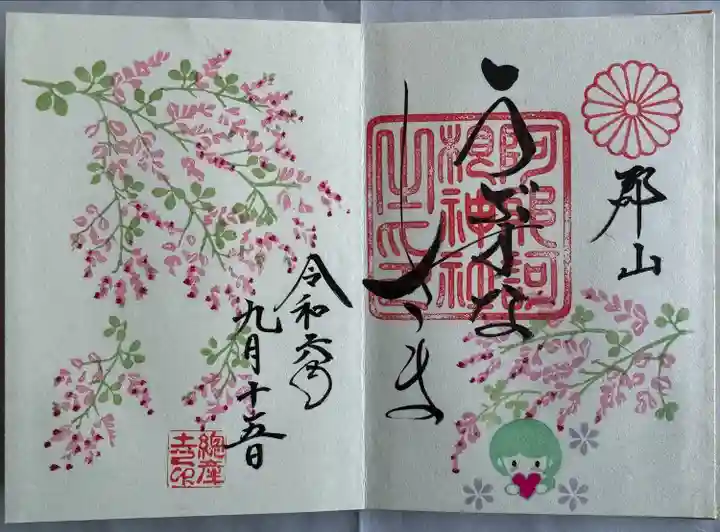 郡山
うぶすな
さま
阿邪訶
根神社
之印
令和六年
九月十五日
總産